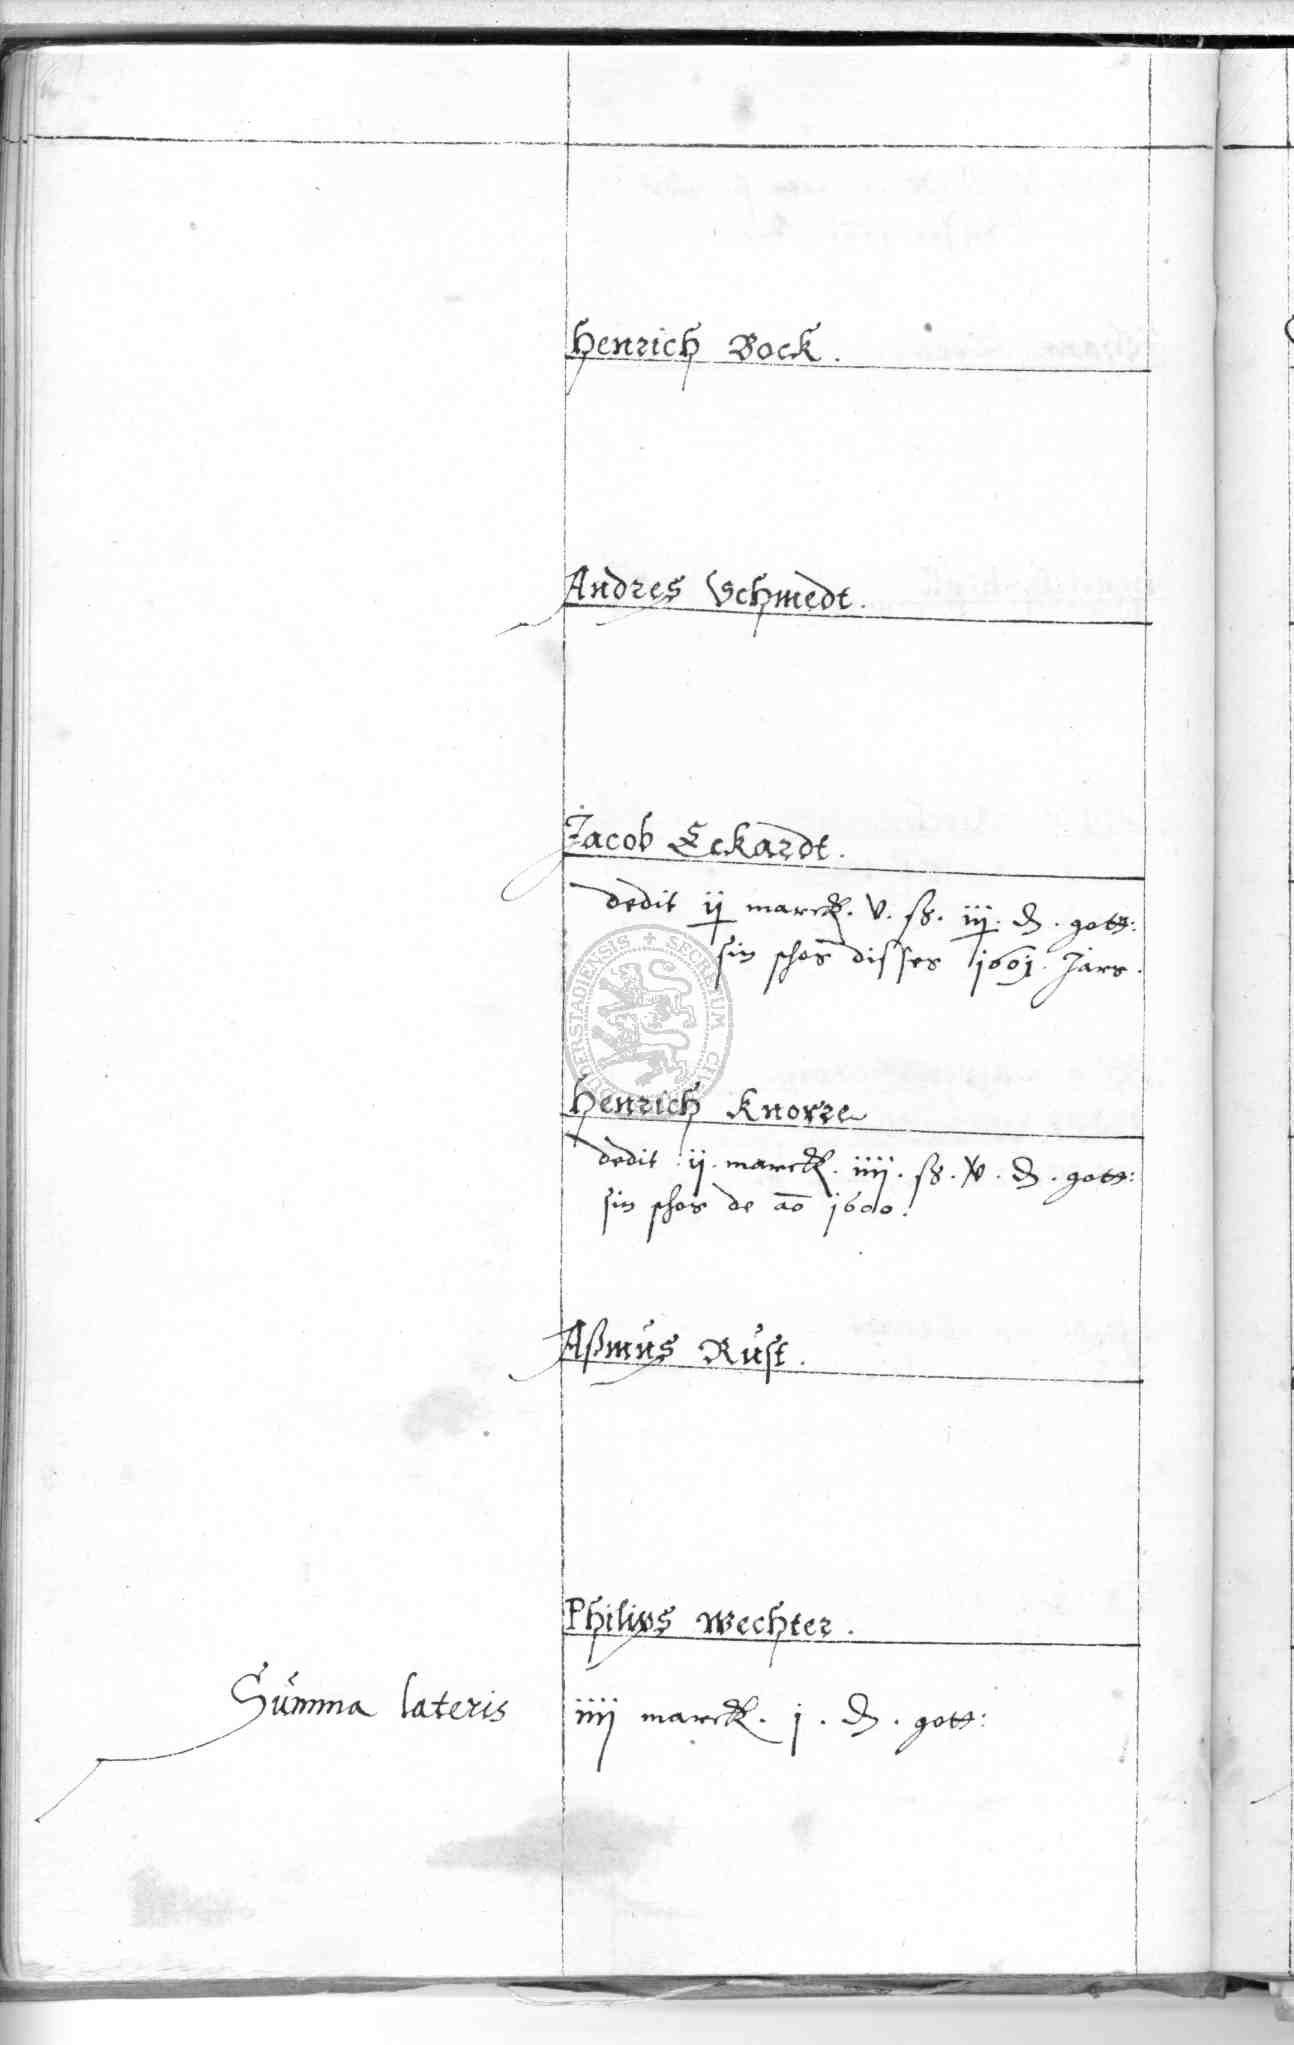 Henrich Bock.
Andres Schmedt.
Jacob Eckardt.
dedit ij marck. v. ß. iij. ₰. gott:
sin schos disses 1601. Jars.
DUDERSTADIENSIS + SECRETUM CIV
Henrich Knorre
dedit ij. marck. iiij. ß. x. ₰. gott:
sin schos de ao 1600.
Aßmus Rust.
Philips Wechter.
Summa lateris iiij marck. j. ₰. gott: